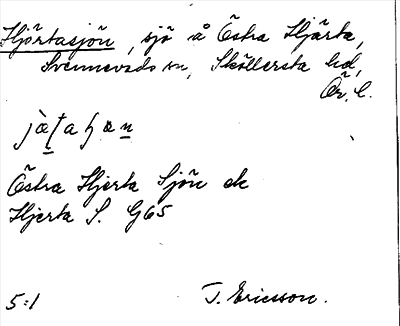 Hjärtasjön, sjö å Östra Hjärta,
Svennevads sn, Sköllersta hd,
Ör. l.
Östra Hjerta Sjön ek
Hjerta S. G65
5:1 T. Ericsson.